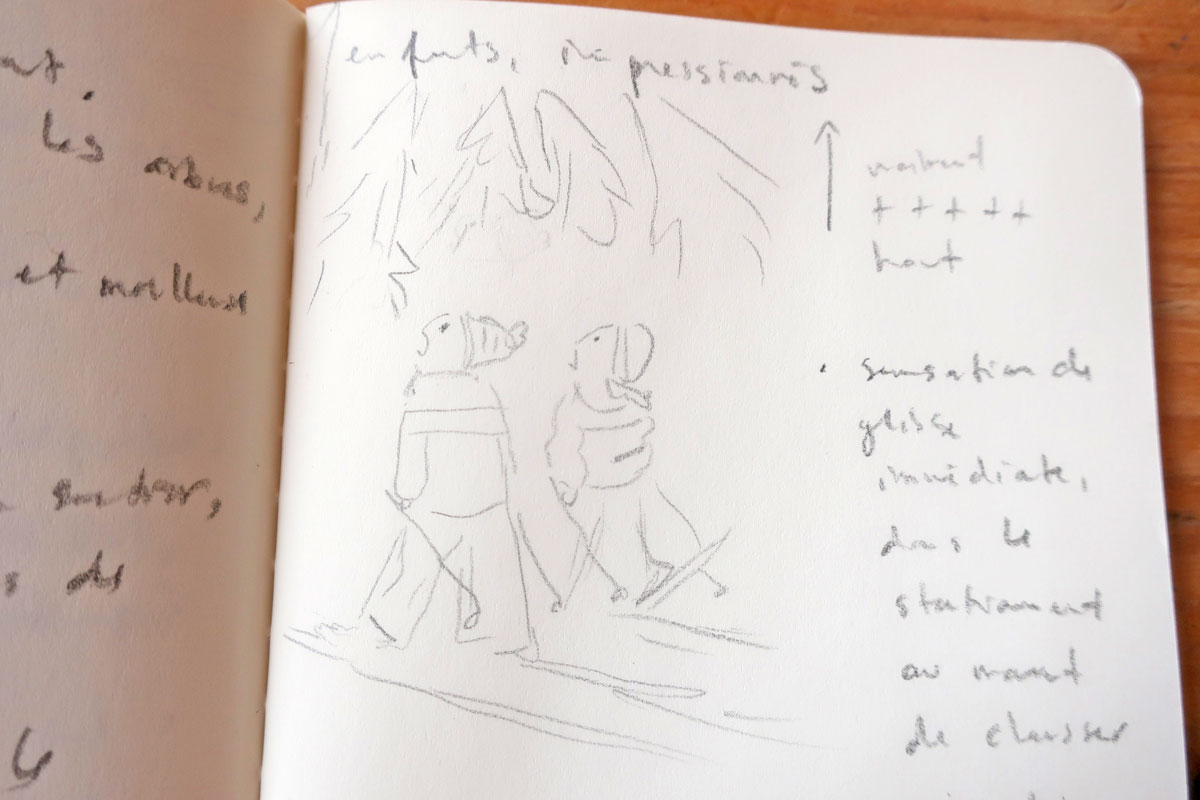 les arbres,
et moelleux
sentier,
de
enfants, impressionnés
+ + + + +
haut
sensation de
glisse
immédiate,
dans le
stationnement
au moment
de chausser